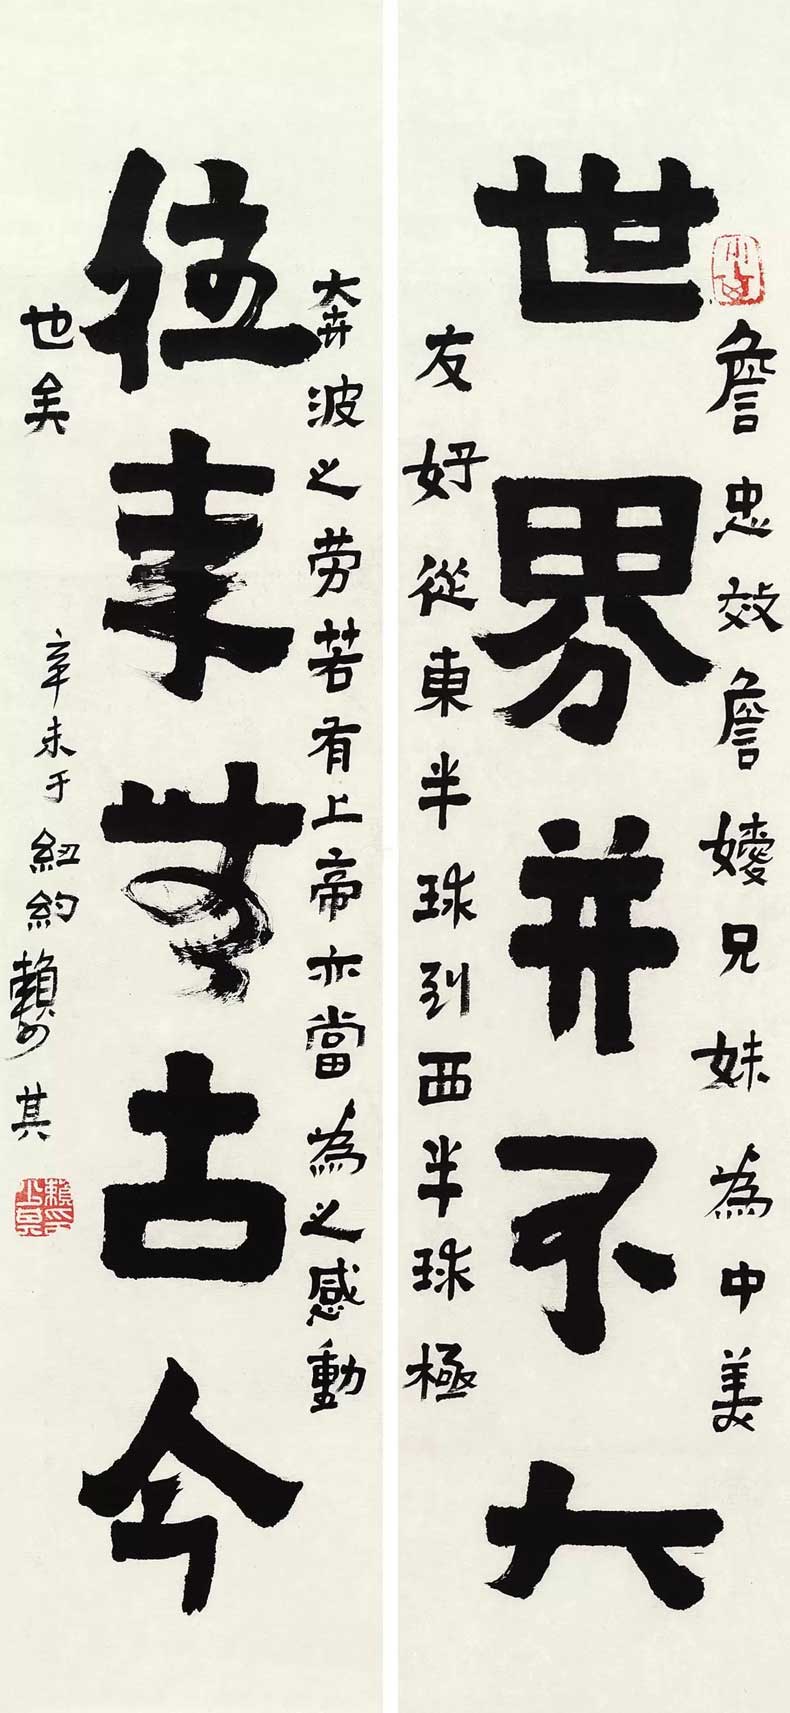 詹忠效詹兄妹為中美
世界并不大
友好從東半球到西半球極
奔波之劳若有上帝亦當為之感動
往来無古今
也矣
辛未于紐約賴少其